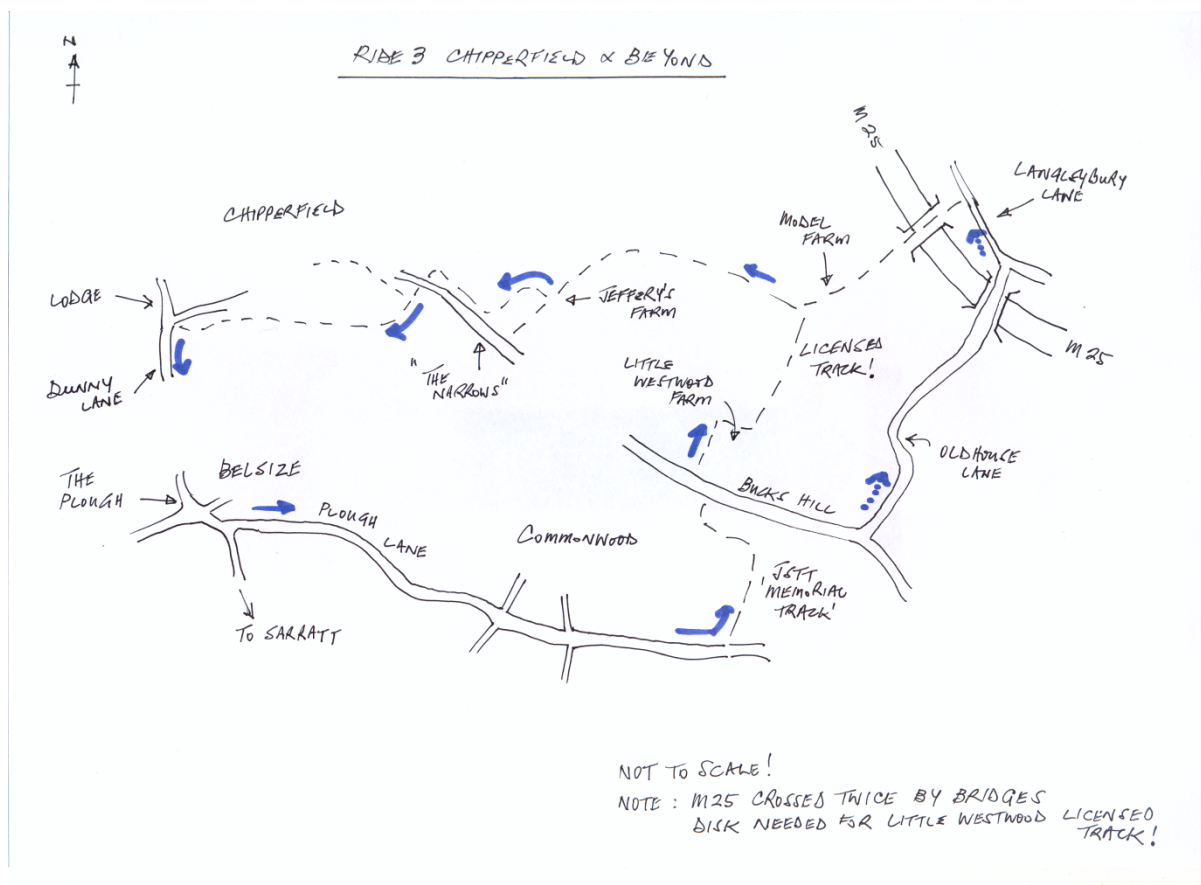 N
RIDE 3 CHIPPERFIELD & BEYOND
M25
LANGLEYBURY
LANE
CHIPPERFIELD
MODEL
FARM
LODGE
JEFFERY'S
FARM
DUNNY
LANE
"THE
NARROWS"
LITTLE
WESTWOOD
FARM
LICENSED
TRACK!
M25
OLDHOUSE
LANE
THE
PLOUGH
BELSIZE
PLOUGH
LANE
BUCKS HILL
COMMONWOOD
'JSTT
'MEMORIAL
TRACK'
TO SARRATT
NOT TO SCALE!
NOTE : M25 CROSSED TWICE BY BRIDGES
DISK NEEDED FOR LITTLE WESTWOOD LICENSED
TRACK!